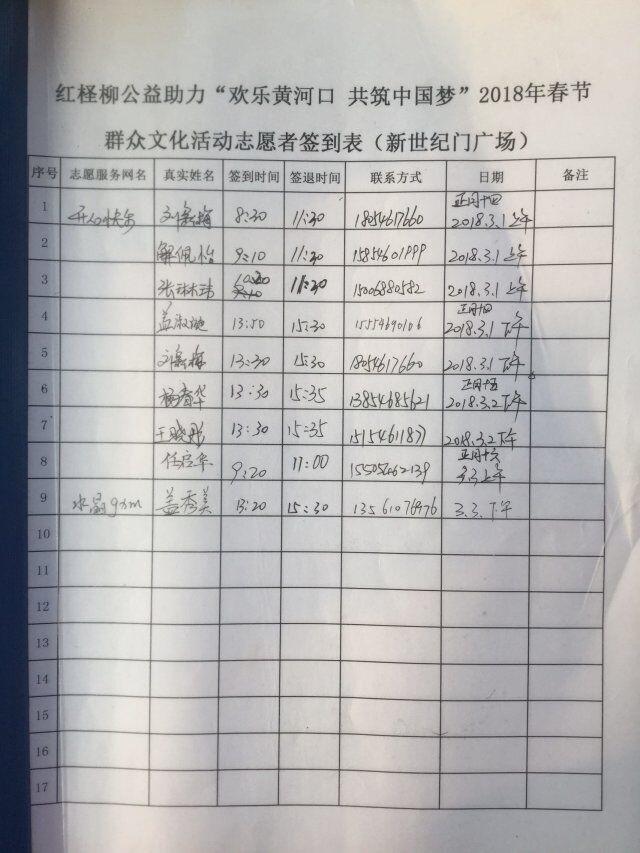 红柽柳公益助力“欢乐黄河口 共筑中国梦”2018年春节
群众文化活动志愿者签到表（新世纪门广场）
序号 志愿服务网名 真实姓名 签到时间 签退时间 联系方式 日期 备注
1 开心快乐 8:30 11:30 18054617660 正月十四 2018.3.1上午
2 解佩怡 9:10 11:30 15854601999 2018.3.1上午
3 张林玮 10:20 11:30 15006880582 2018.3.1上午
4 13:50 15:30 15554690106 正月十四 2018.3.1下午
5 13:30 15:30 18054617660 2018.3.1下午
6 杨春华 13:30 15:35 13854685621 正月十五 2018.3.2下午
7 王晓彤 13:30 15:35 2018.3.2下午
8 任启华 9:20 11:00 15505462139 正月十六 3.3上午
9 盖秀美 13:20 15:30 13561076976 3.3.下午
10
11
12
13
14
15
16
17